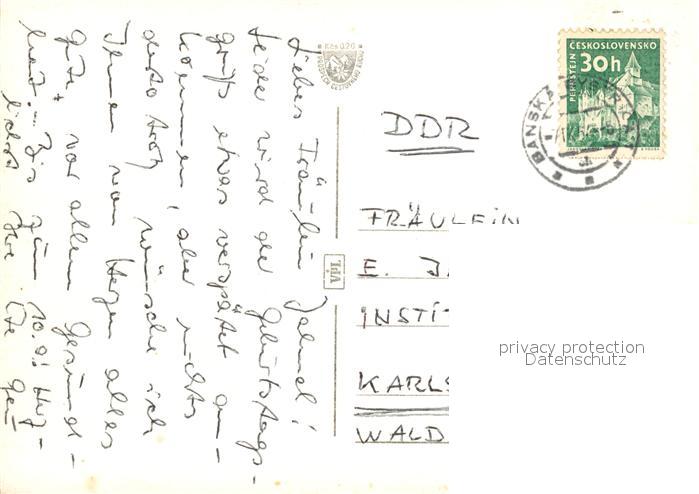 Liebes Fräulein Jahnel!
Leider wird der Geburtstags-
gruß etwas verspätet an-
kommen, aber nichts
desto trotz wünsche ich
Ihnen von Herzen alles
Gute + vor allem Gesund-
heit. Bis zum 10.9.! Herz-
lichst Ihre
Kčs 0,20
VPL
ČESKOSLOVENSKO
30h
PERNŠTEJN
BANSKÁ
DDR
FRÄULEIN
E. J
INSTI
KARLS
WALD
privacy protection
Datenschutz